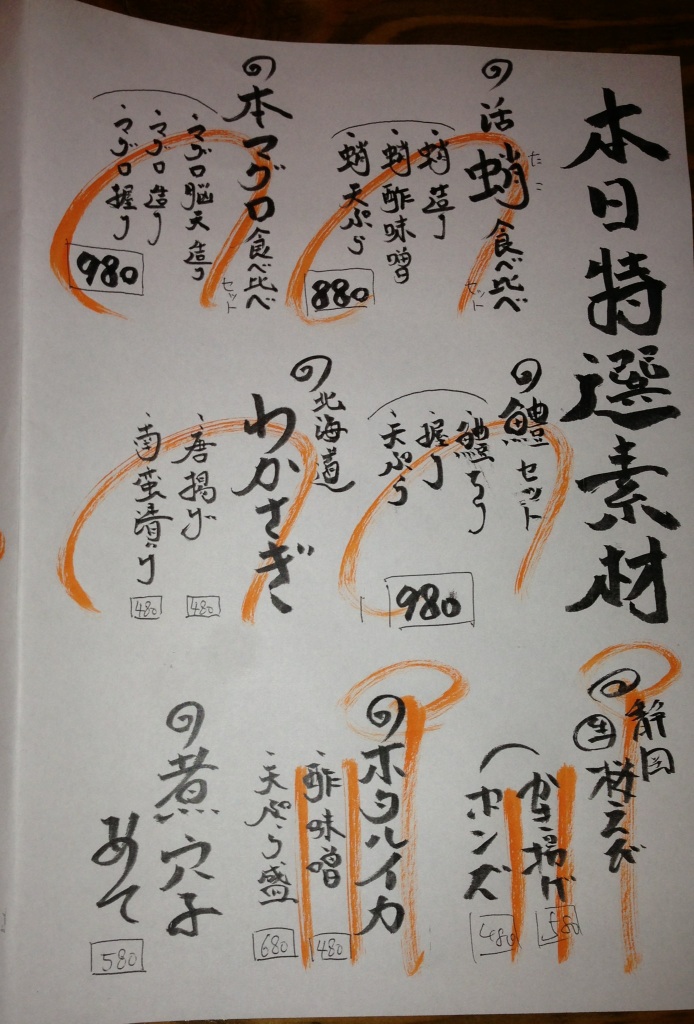 本日特選素材
活蛸食べ比べ
たこ
セット
蛸造り
蛸酢味噌
蛸天ぷら
880
本マグロ食べ比べ
セット
マグロ脳天造り
マグロ造り
マグロ握り
980
鱧セット
鱧ちり
握り
天ぷら
980
北海道
わかさぎ
唐揚げ
480
南蛮漬け
480
静岡
生桜えび
かき揚げ
580
ポンズ
480
ホタルイカ
酢味噌
480
天ぷら盛
680
煮穴子
580